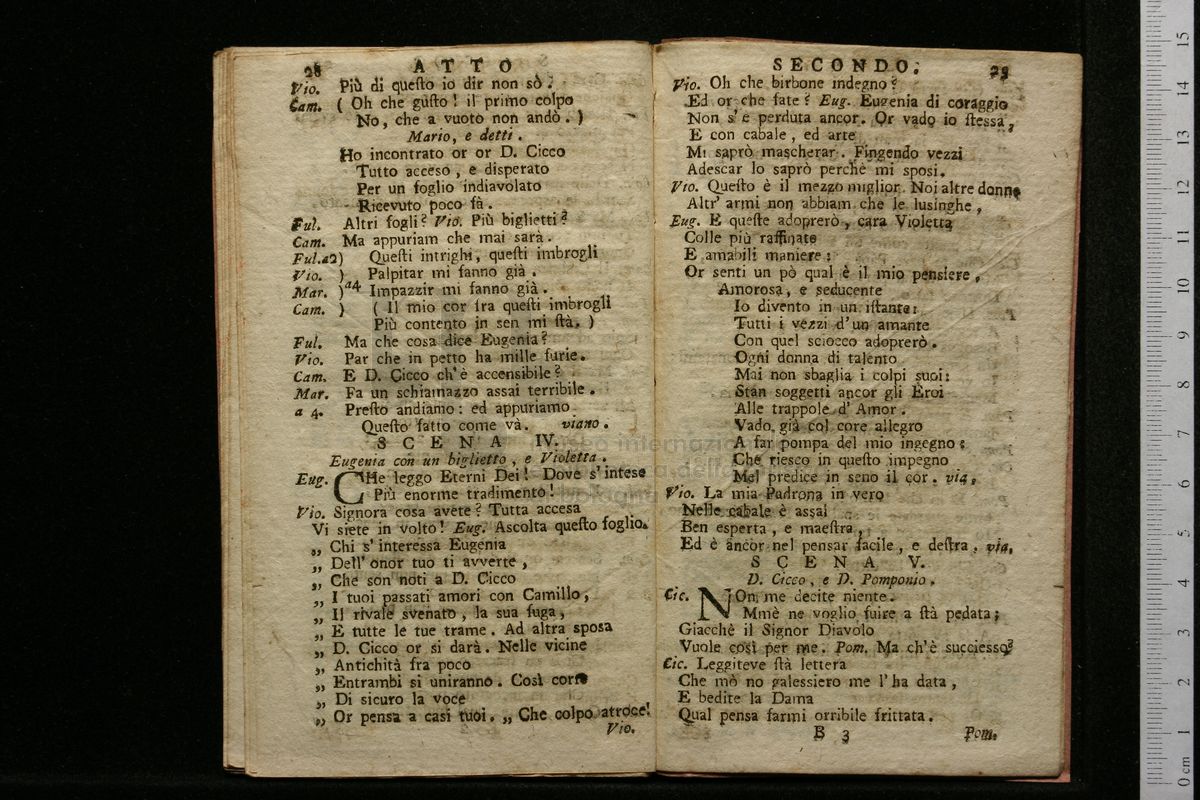 28 ATTO
Vio. Più di questo io dir non sò.
Cam. ( Oh che gusto! il primo colpo
No, che a vuoto non andò. )
Mario, e detti.
Ho incontrato or or D. Cicco
Tutto acceso, e disperato
Per un foglio indiavolato
Ricevuto poco fà.
Ful. Altri fogli? Vio. Più biglietti?
Cam. Ma appuriam che mai sarà.
Ful.a2) Questi intrighi, questi imbrogli
Vio. ) Palpitar mi fanno già.
Mar. )a4 Impazzir mi fanno già.
Cam. ) ( Il mio cor fra questi imbrogli
Più contento in sen mi stà. )
Ful. Ma che cosa dice Eugenia?
Vio. Par che in petto ha mille furie.
Cam. E D. Cicco ch'è accensibile?
Mar. Fa un schiamazzo assai terribile.
a 4. Presto andiamo: ed appuriamo
Questo fatto come và. viano.
SCENA IV.
Eugenia con un biglietto, e Violetta.
Eug. CHe leggo Eterni Dei! Dove s'intese
Più enorme tradimento!
Vio. Signora cosa avete? Tutta accesa
Vi siete in volto! Eug. Ascolta questo foglio.
„ Chi s'interessa Eugenia
„ Dell'onor tuo ti avverte,
„ Che son noti a D. Cicco
„ I tuoi passati amori con Camillo,
„ Il rivale svenato, la sua fuga,
„ E tutte le tue trame. Ad altra sposa
„ D. Cicco or si darà. Nelle vicine
„ Antichità fra poco
„ Entrambi si uniranno. Così corre
„ Di sicuro la voce
„ Or pensa a casi tuoi. „ Che colpo atroce!
Vio.
SECONDO. 29
Vio. Oh che birbone indegno?
Ed or che fate? Eug. Eugenia di coraggio
Non s'è perduta ancor. Or vado io stessa,
E con cabale, ed arte
Mi saprò mascherar. Fingendo vezzi
Adescar lo saprò perchè mi sposi.
Vio. Questo è il mezzo miglior. Noi altre donne
Altr'armi non abbiam che le lusinghe,
Eug. E queste adoprerò, cara Violetta
Colle più raffinate
E amabili maniere:
Or senti un pò qual è il mio pensiere.
Amorosa, e seducente
Io divento in un istante:
Tutti i vezzi d'un amante
Con quel sciocco adoprerò.
Ogni donna di talento
Mai non sbaglia i colpi suoi:
Stan soggetti ancor gli Eroi
Alle trappole d'Amor.
Vado già col core allegro
A far pompa del mio ingegno:
Che riesco in questo impegno
Mel predice in seno il cor. via.
Vio. La mia Padrona in vero
Nelle cabale è assai
Ben esperta, e maestra,
Ed è ancor nel pensar facile, e destra. via.
SCENA V.
D. Cicco, e D. Pomponio.
Cic. NOn me decite niente.
Mmè ne voglio fuire a stà pedata;
Giacchè il Signor Diavolo
Vuole così per me. Pom. Ma ch'è successo?
Cic. Leggiteve stà lettera
Che mò no galessiero me l'ha data,
E bedite la Dama
Qual pensa farmi orribile frittata.
B 3 Pom.